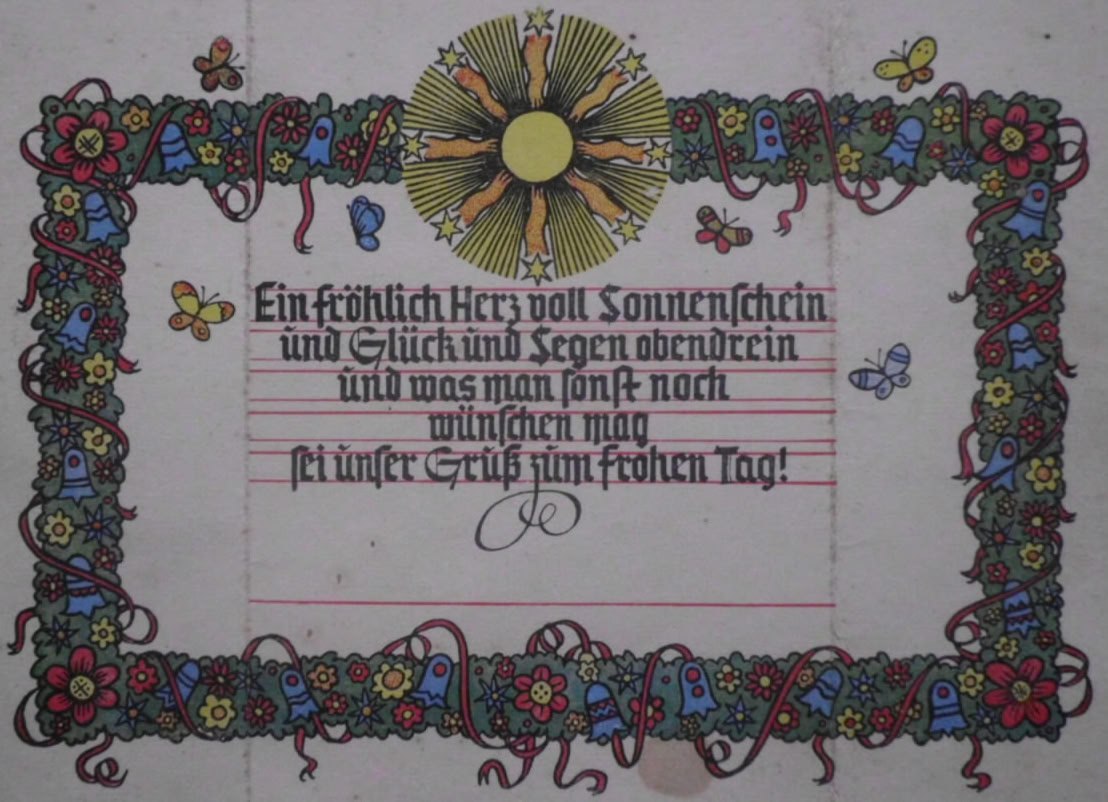 Ein fröhlich Herz voll Sonnenschein
und Glück und Segen obendrein
und was man sonst noch
wünschen mag
sei unser Gruß zum frohen Tag!